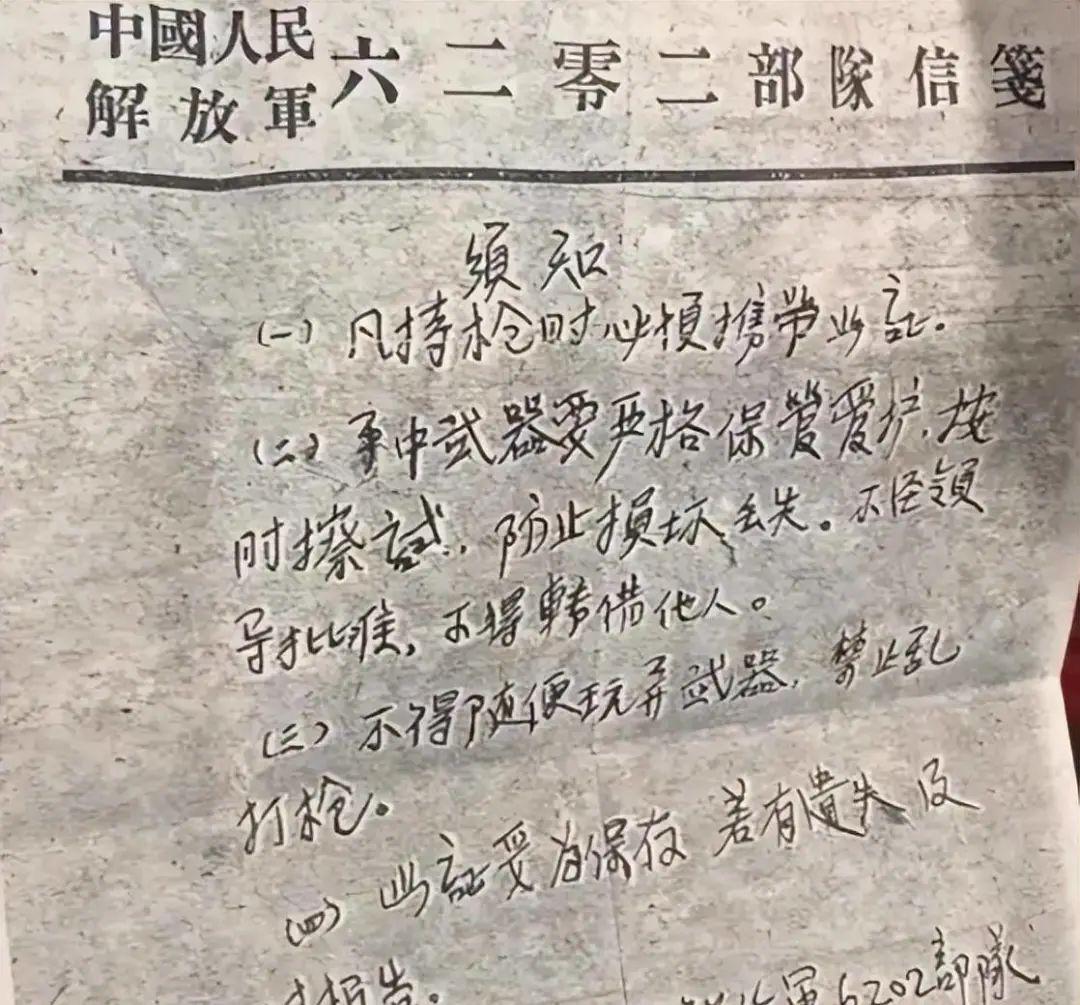 中國人民
解放軍 六二零二部隊信箋
須知
(一) 凡持枪时必須携带此証.
(二) 手中武器要严格保管爱护, 按
时擦試, 防止損坏丢失。不经領
导批准, 不得轉借他人。
(三) 不得随便玩弄武器, 禁止乱
打枪。
(四) 此証妥为保存 若有遺失 及
时报告.
放軍6202部隊